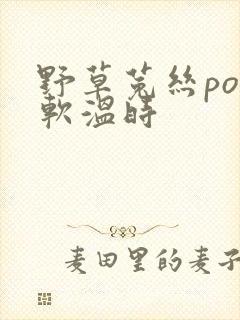 野草菟丝po
軟溫時
麦田里的麦子